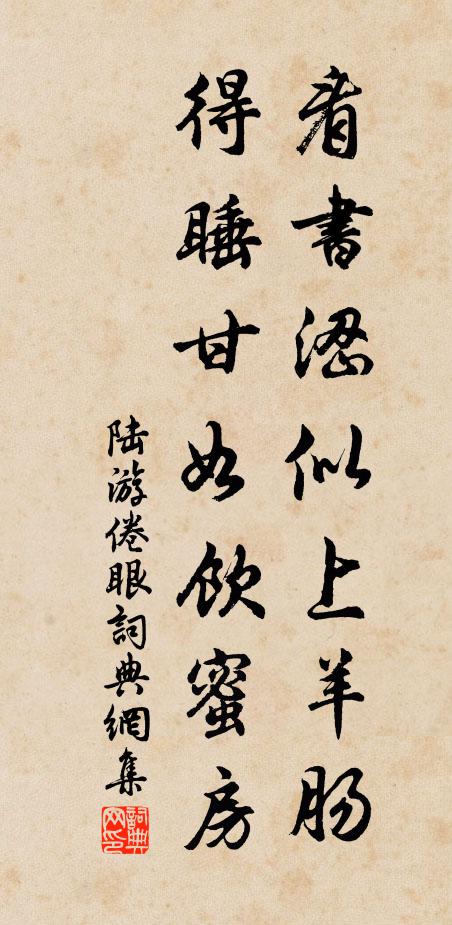 看書澀似上羊腸
得睡甘如飲蜜房
陸游倦眼詞典網集
詞典網印